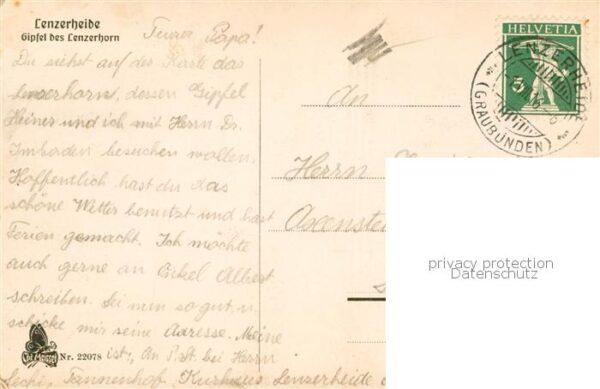 Lenzerheide
Gipfel des Lenzerhorn
Teurer Papa!
Du siehst auf der Karte das
Lenzerhorn, dessen Gipfel
Heiner und ich mit Herrn Dr.
Imboden besuchen wollen.
Hoffentlich hast du das
schöne Wetter benutzt und hast
Ferien gemacht. Ich möchte
auch gerne an Onkel Albert
schreiben. Sei nun so gut, u.
schicke mir seine Adresse. Meine
ist, An P. St. bei Herrn
Tannenhof, Kurhaus Lenzerheide
Nr. 22078
An
Herrn
Axenstei
HELVETIA
5
LENZERHEIDE
(GRAUBÜNDEN)
privacy protection
Datenschutz